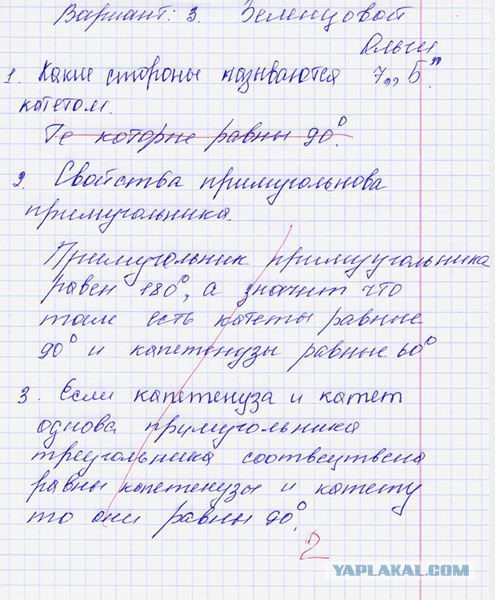 Вариант: 3. Зеленцовой
Ольги
1. Какие стороны называются 7„Б"
катетом.
Те которие равны 90°.
2. Свойства примугольнова
примугольника.
Примугольник примуугольника
равен 180°, а значит что
там есть катеты равные
90° и капетенузы равные 60°
3. Если капетенуза и катет
однова примугольника
треугольника соотвецтвена
равны капетенузы и катету
то они равны 90°.
2
YAPLAKAL.COM